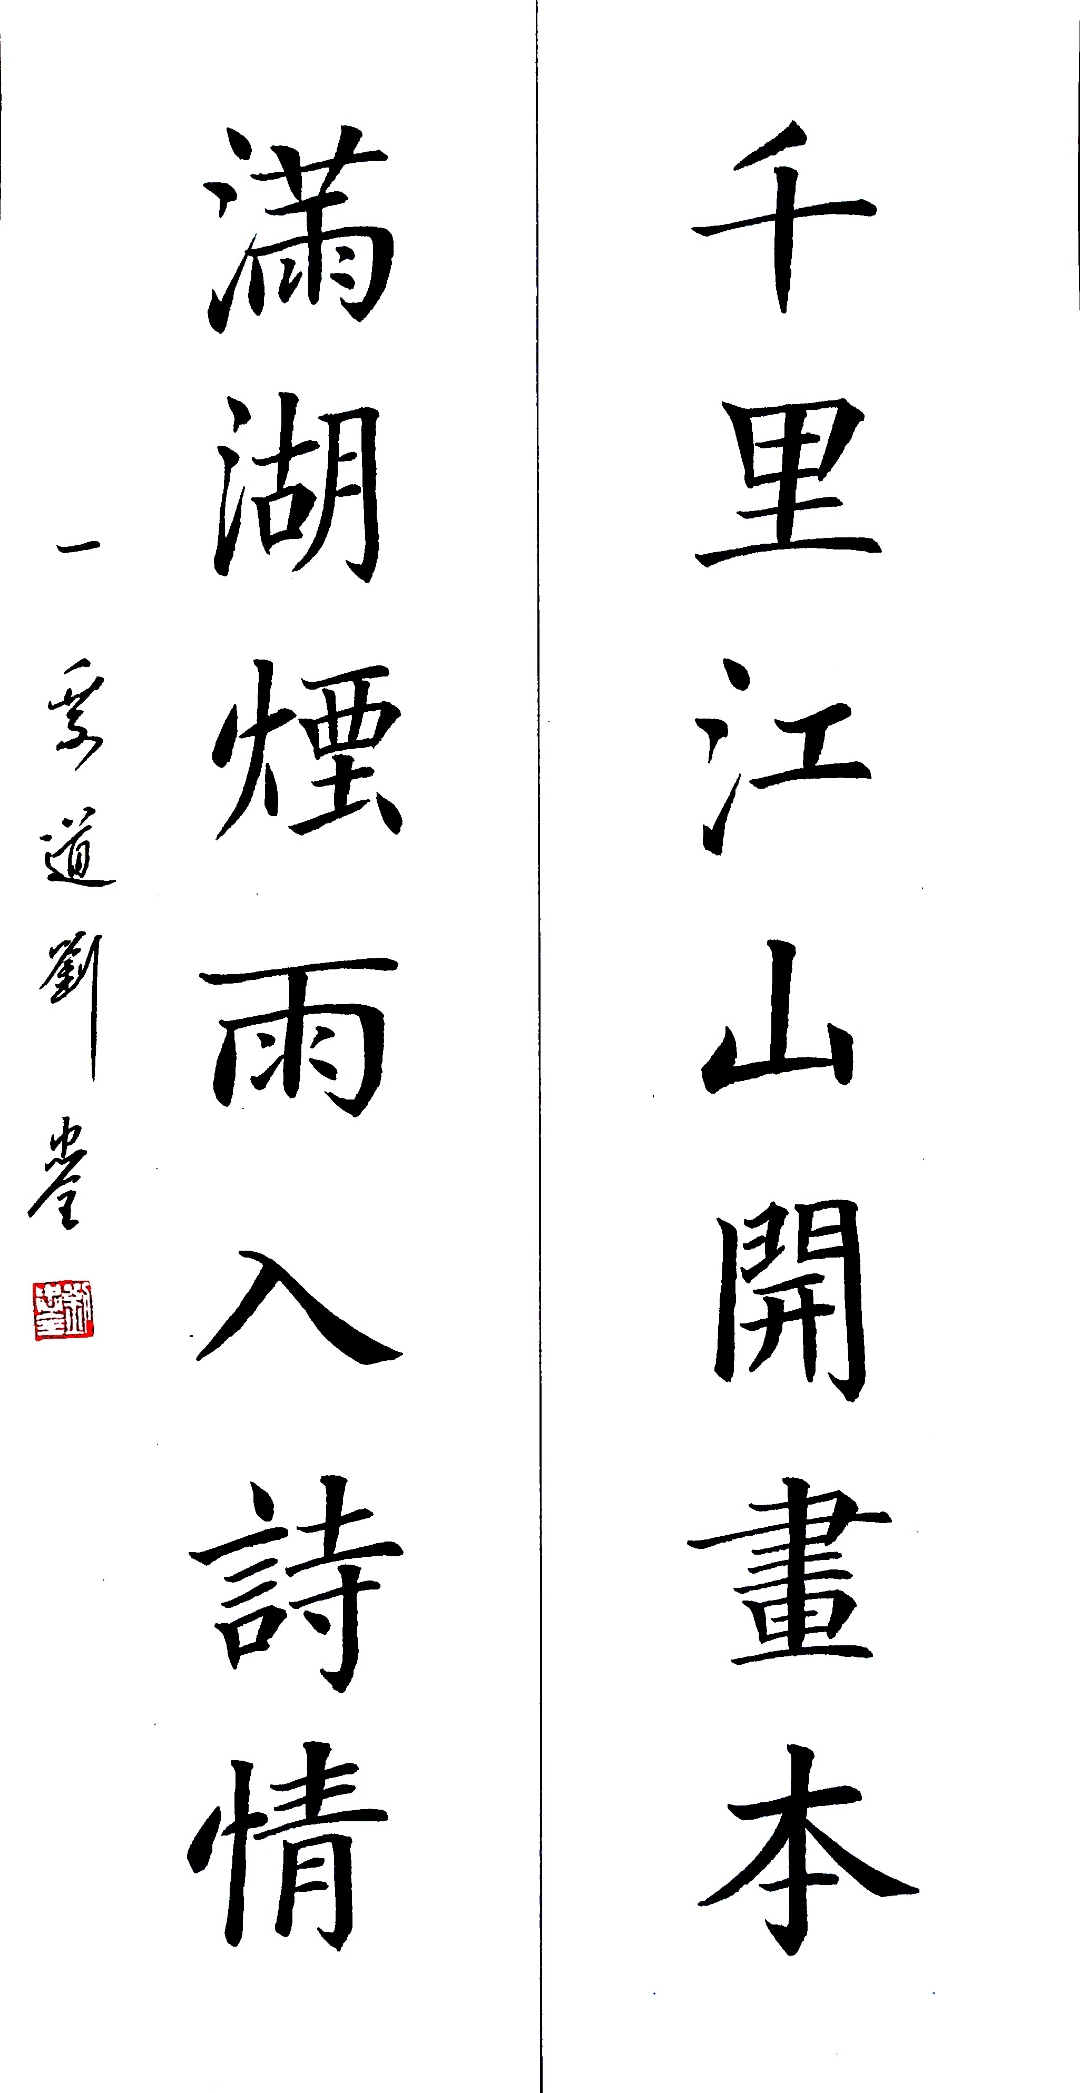 千里江山開畫本
滿湖煙雨入詩情
一貫道劉忠荃